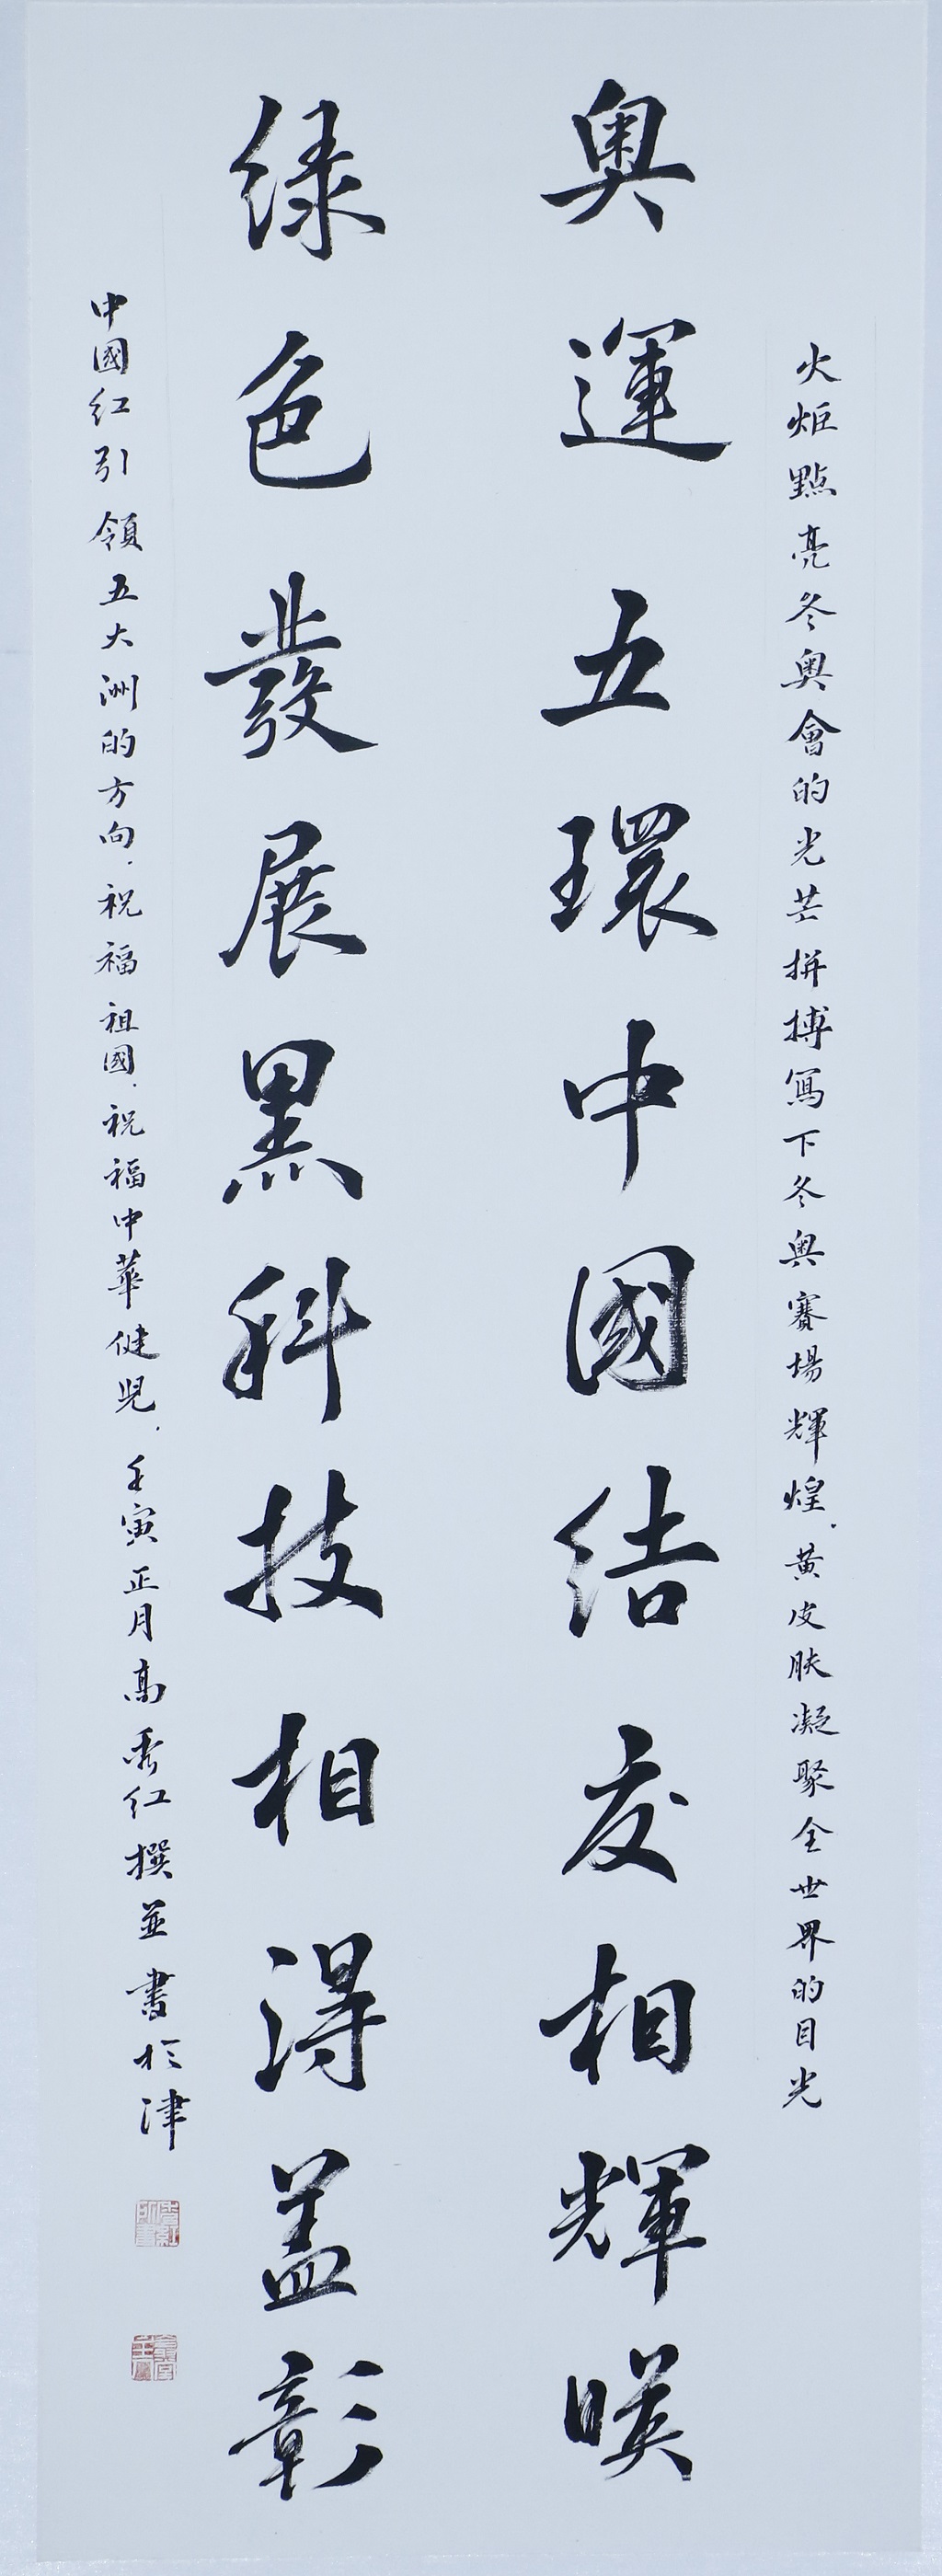 火炬點亮冬奥會的光芒拼搏寫下冬奥賽場輝煌.黄皮肤凝聚全世界的目光
奥運五環中國结交相輝暎
绿色發展黑科技相得盖彰
中國红引領五大洲的方向.祝福祖國.祝福中華健児.壬寅正月高秀红撰並書於津